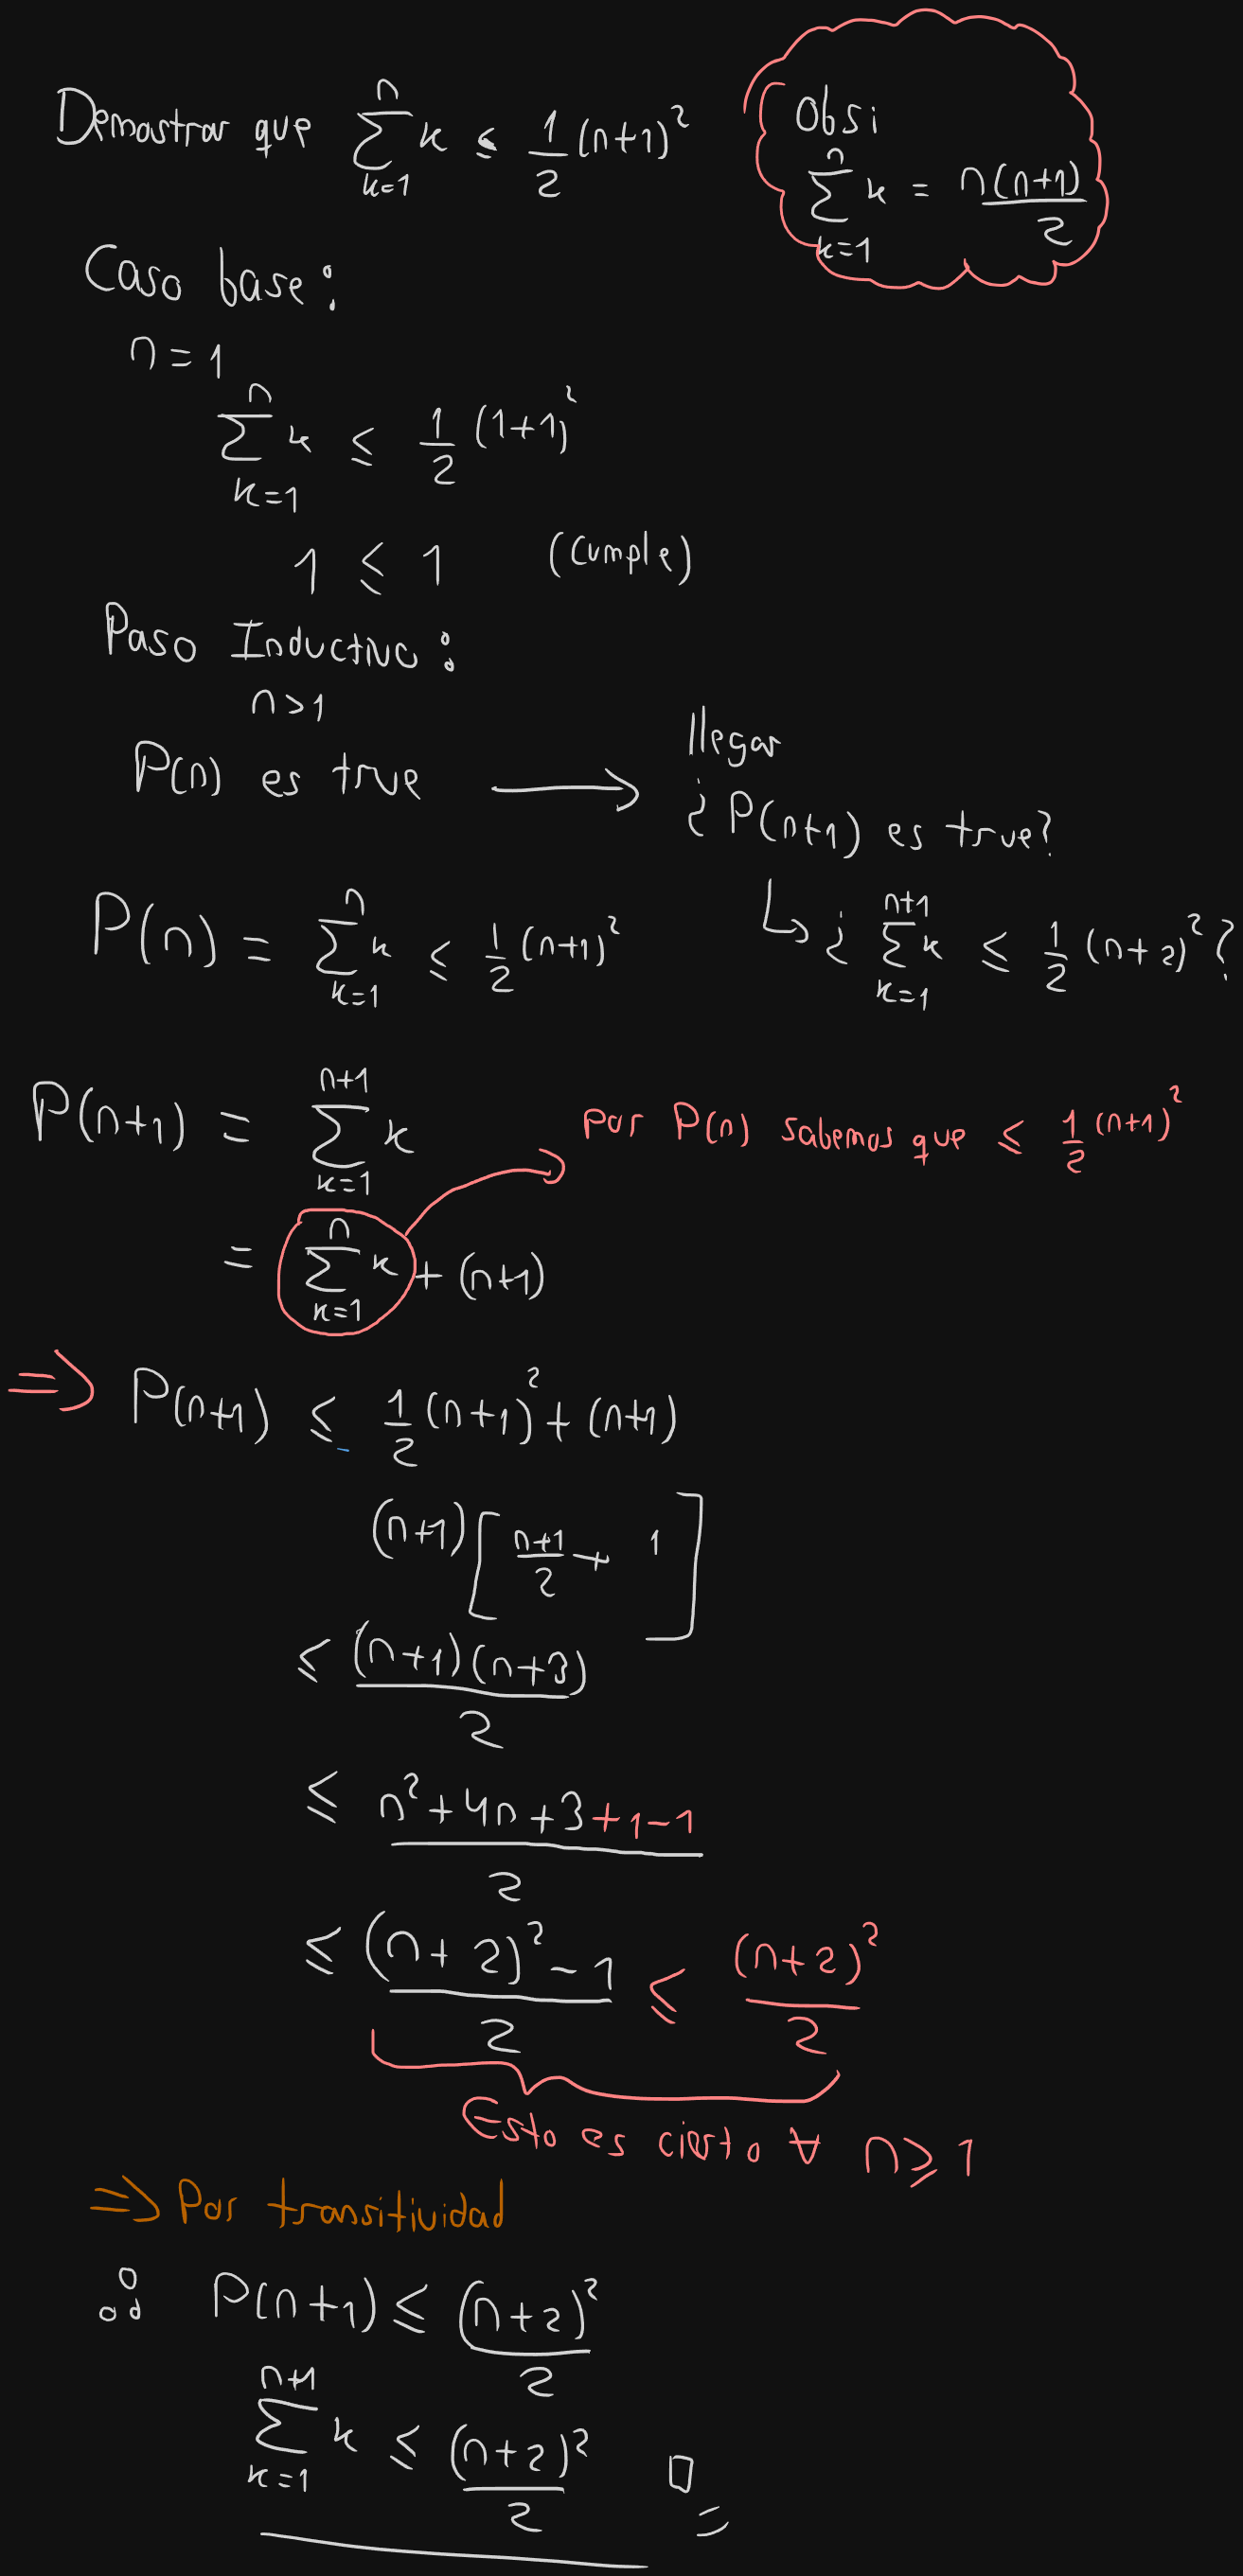 Demostrar que ∑_{k=1}^{n} k ≤ 1/2 (n+1)²
Obs:
∑_{k=1}^{n} k = n(n+1)/2
Caso base:
n = 1
∑_{k=1}^{n} k ≤ 1/2 (1+1)²
1 ≤ 1 (cumple)
Paso Inductivo:
n > 1
P(n) es true ⟶ llegar
¿P(n+1) es true?
P(n) = ∑_{k=1}^{n} k ≤ 1/2 (n+1)²
↳ ¿ ∑_{k=1}^{n+1} k ≤ 1/2 (n+2)² ?
P(n+1) = ∑_{k=1}^{n+1} k
por P(n) sabemos que ≤ 1/2 (n+1)²
= ∑_{k=1}^{n} k + (n+1)
⇒ P(n+1) ≤ 1/2 (n+1)² + (n+1)
(n+1)[(n+1)/2 + 1]
≤ (n+1)(n+3)/2
≤ (n²+4n+3+1-1)/2
≤ ((n+2)²-1)/2 ≤ (n+2)²/2
Esto es cierto ∀ n ≥ 1
⇒ Por transitividad
∴ P(n+1) ≤ (n+2)²/2
∑_{k=1}^{n+1} k ≤ (n+2)²/2 □